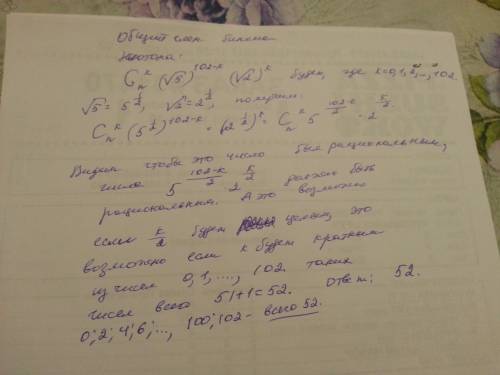 Общий член бинома
Ньютона:
C_n^k (√5)^{102-k} (√2)^k будет, где k=0,1,2,...,102.
√5 = 5^{1/2}, √2 = 2^{1/2}, получим:
C_n^k (5^{1/2})^{102-k} · (2^{1/2})^k = C_n^k 5^{(102-k)/2} · 2^{k/2}.
Видим чтобы это число был рациональным,
числа 5^{(102-k)/2} 2^{k/2} должно быть
рациональным. А это возможно
если k/2 будет целым, это
возможно если k будет кратным
из чисел 0, 1, ...., 102. таких
чисел всего 51+1=52. Ответ: 52.
0; 2; 4; 6; ..., 100; 102 - всего 52.